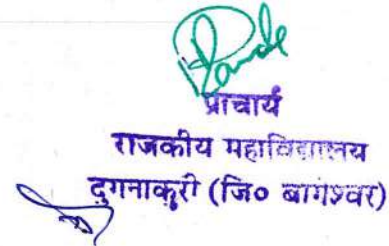 प्राचार्य
राजकीय महाविद्यालय
दुगनाकुरी (जि० बागेश्वर)